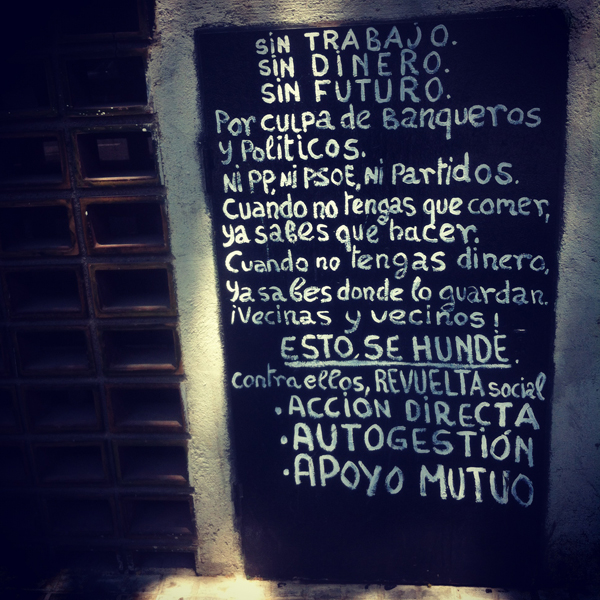 sin TRABAJO.
sin DINERO.
sin FUTURO.
Por culpa de Banqueros
y Politicos.
Ni PP, Ni PSOE, Ni Partidos.
Cuando no tengas que comer,
ya sabes que hacer.
Cuando no tengas dinero,
Ya sabes donde lo guardan.
¡Vecinas y vecinos!
ESTO SE HUNDE.
contra ellos, REVUELTA social
·ACCION DIRECTA
·AUTOGESTIÓN
·APOYO MUTUO